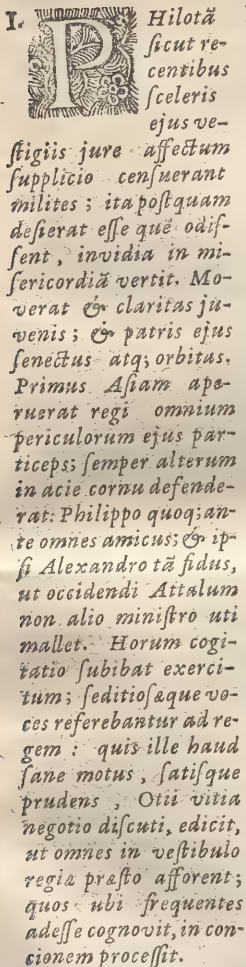 I. PHilotā
ſicut re-
centibus
ſceleris
ejus ve-
ſtigiis jure affectum
ſupplicio cenſuerant
milites ; ita poſtquam
deſierat eſſe quē odiſ-
ſent , invidia in mi-
ſericordiā vertit. Mo-
verat & claritas ju-
venis ; & patris ejus
ſenectus atq; orbitas.
Primus Aſiam ape-
ruerat regi omnium
periculorum ejus par-
ticeps; ſemper alterum
in acie cornu defende-
rat: Philippo quoq; an-
te omnes amicus; & ip-
ſi Alexandro tā fidus,
ut occidendi Attalum
non alio miniſtro uti
mallet. Horum cogi-
tatio ſubibat exerci-
tum; ſeditioſæque vo-
ces referebantur ad re-
gem : quis ille haud
ſane motus , ſatiſque
prudens , Otii vitia
negotio diſcuti, edicit,
ut omnes in veſtibulo
regiæ præſto afforent;
quos ubi frequentes
adeſſe cognovit, in con-
cionem proceſſit.